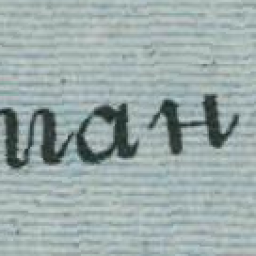 пан